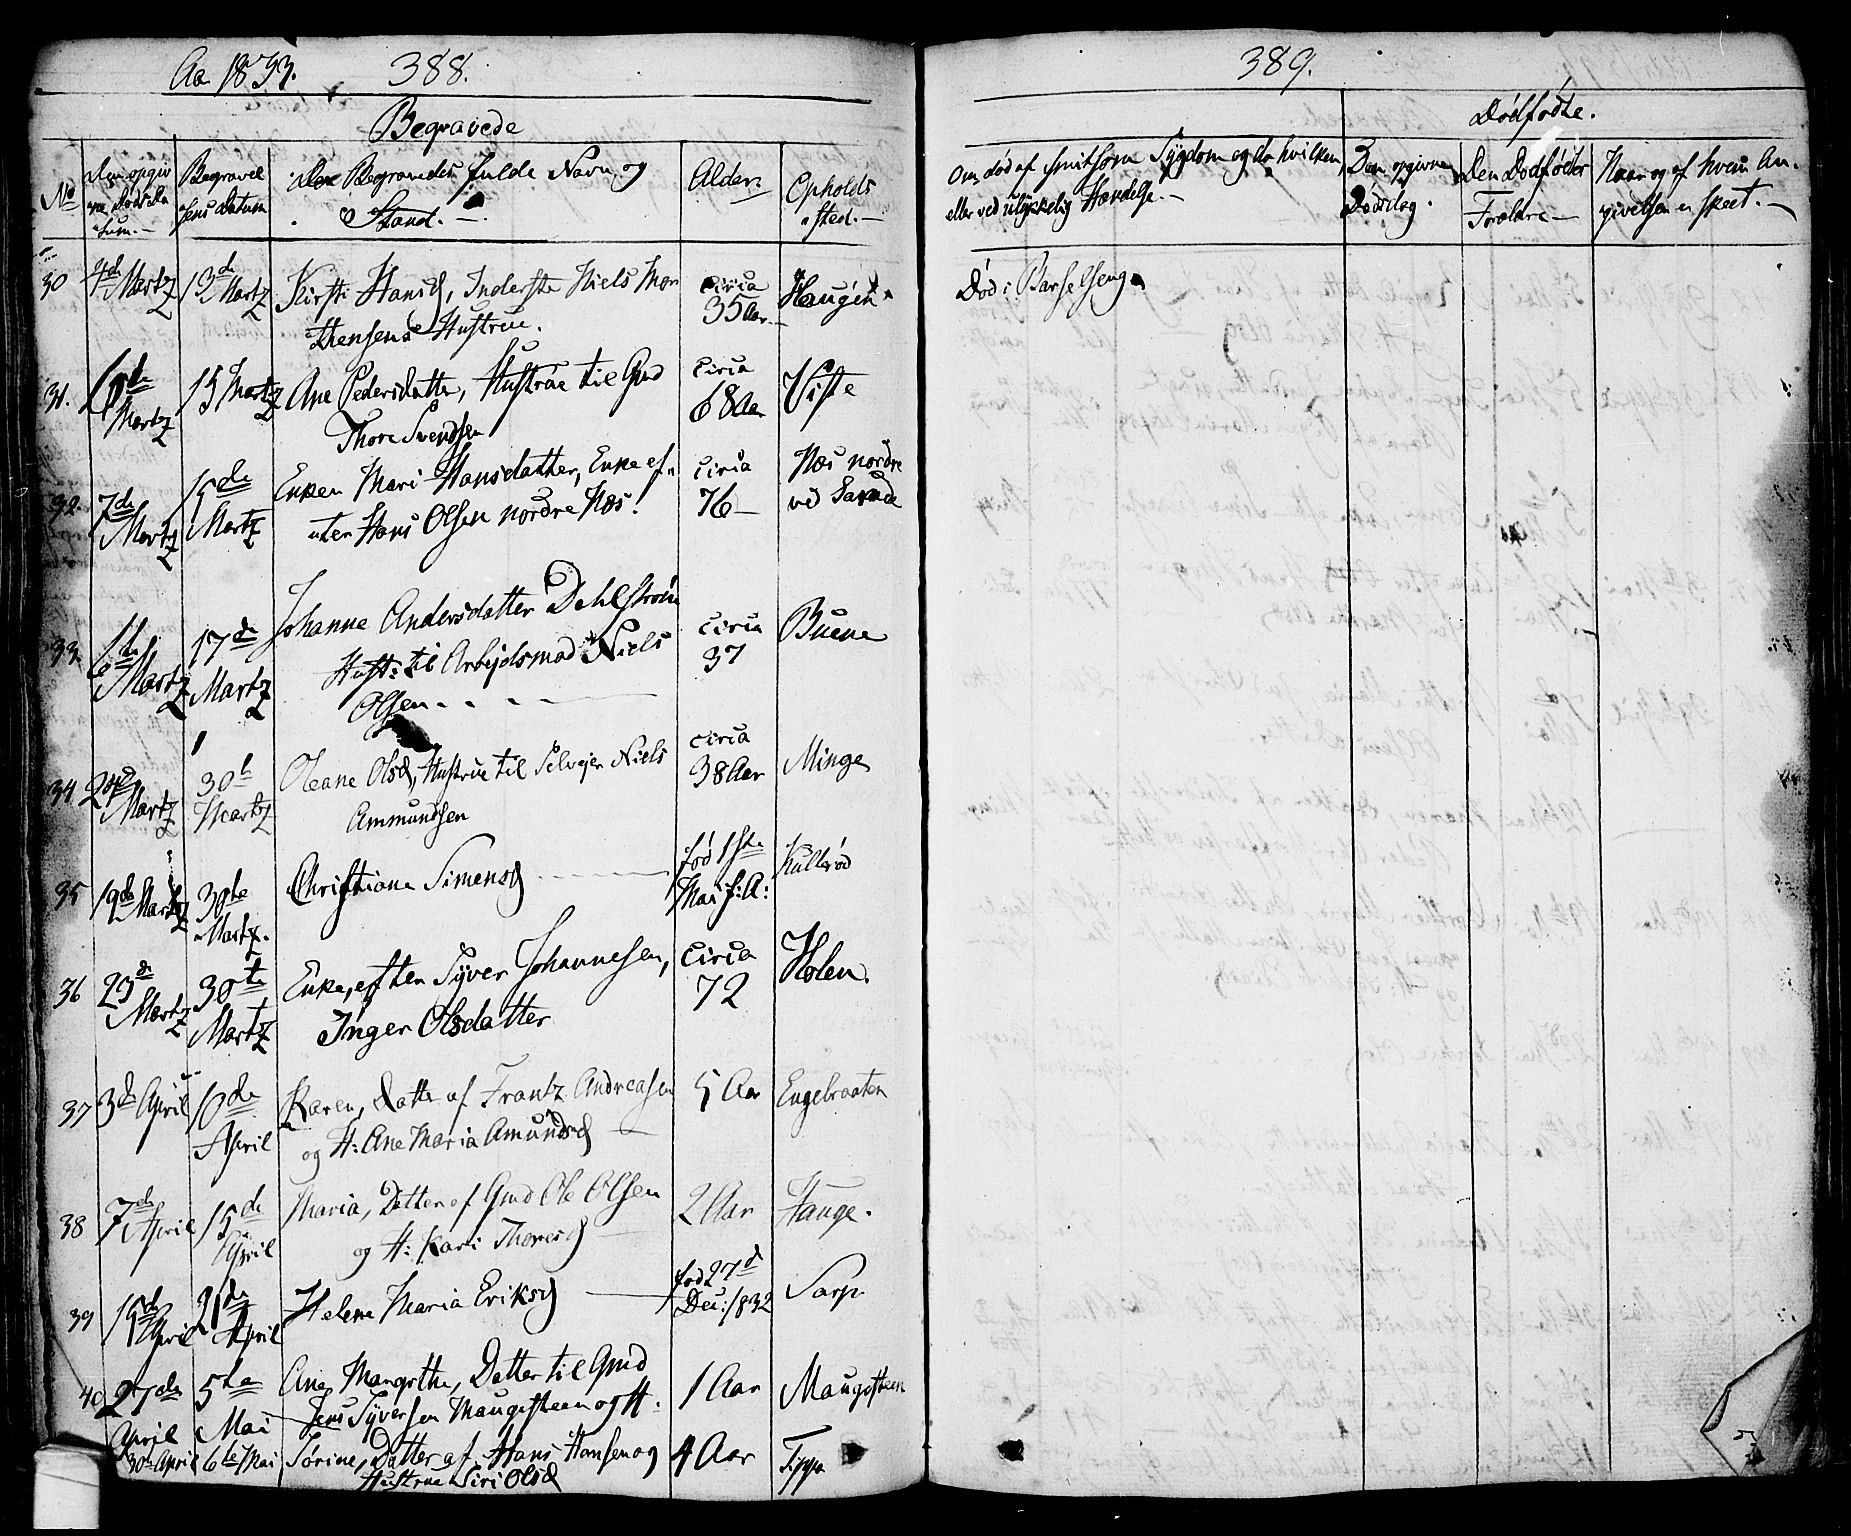 Aar 1833. 388.
Begravede
No
Den opgiv
ne Døds Da
tum.
Begravel
sens Datum
Den Begravedes fulde Navn og
Stand.
Alder.
Opholds
sted.
30 4de Martz 13de Martz Kirsti Hansd, Inderste Niels Mor
tensens Hustrue. circa 35 Aar Haugen
31. 6te Martz 15 Martz Ane Pedersdatter, Hustrue til Gmd
Thore Svendsen circa 68 Aar Viste
32. 7de Martz 15de Martz Enken Mari Hansdatter, Enke ef-
ter Hans Olsen nordre Næs! circa 76 Næs nordre
ved
33. Martz 17de Martz Johanne Andersdatter Dehlstrøm
Hust: til Arbejdsmad Niels
Olsen circa 37 Buene
34 24de Martz 30te Martz Oleane Olsd, Hustrue til Selvejer Niels
Ammundsen circa 38 Aar Minge
35 19de Martz 30te Martz. Christiane Simensd født 1ste
Mai f: A: Kullerød
36 23de Martz 30te Martz Enke, efter Syver Johannesen,
Inger Olsdatter circa 72 Holen.
37 3de April 10de April Karen, Datter af Frantz Andreasen
og H: Ane Maria Amundsd 5 Aar Engebraaten
38 7de April 15de April Maria, Datter af Gmd Ole Olsen
og H: Kari Thoresd 2 Aar Hauge.
39 15de April 21de April Helene Maria Eriksd fød 27de
Dec: 1832 Sarp.
40 27de April 5te Mai Ane Margrthe, Datter til Gmd
Jens Syversen Maugesteen og H: 1 Aar Maugesteen
30te April 6te Mai Sørine, Datter af Hans Hansen og
Hustrue Siri Olsd 4 Aar
389.
Dødfødte.
Om død af smitsom Sygdom og da hvilken,
eller ved ulykkelig Hændelse.
Den opgivne
Dødsdag.
Den Dødfødtes
Forældre
Naar og af hvem An-
givelsen er skeet.
Død i Barselseng